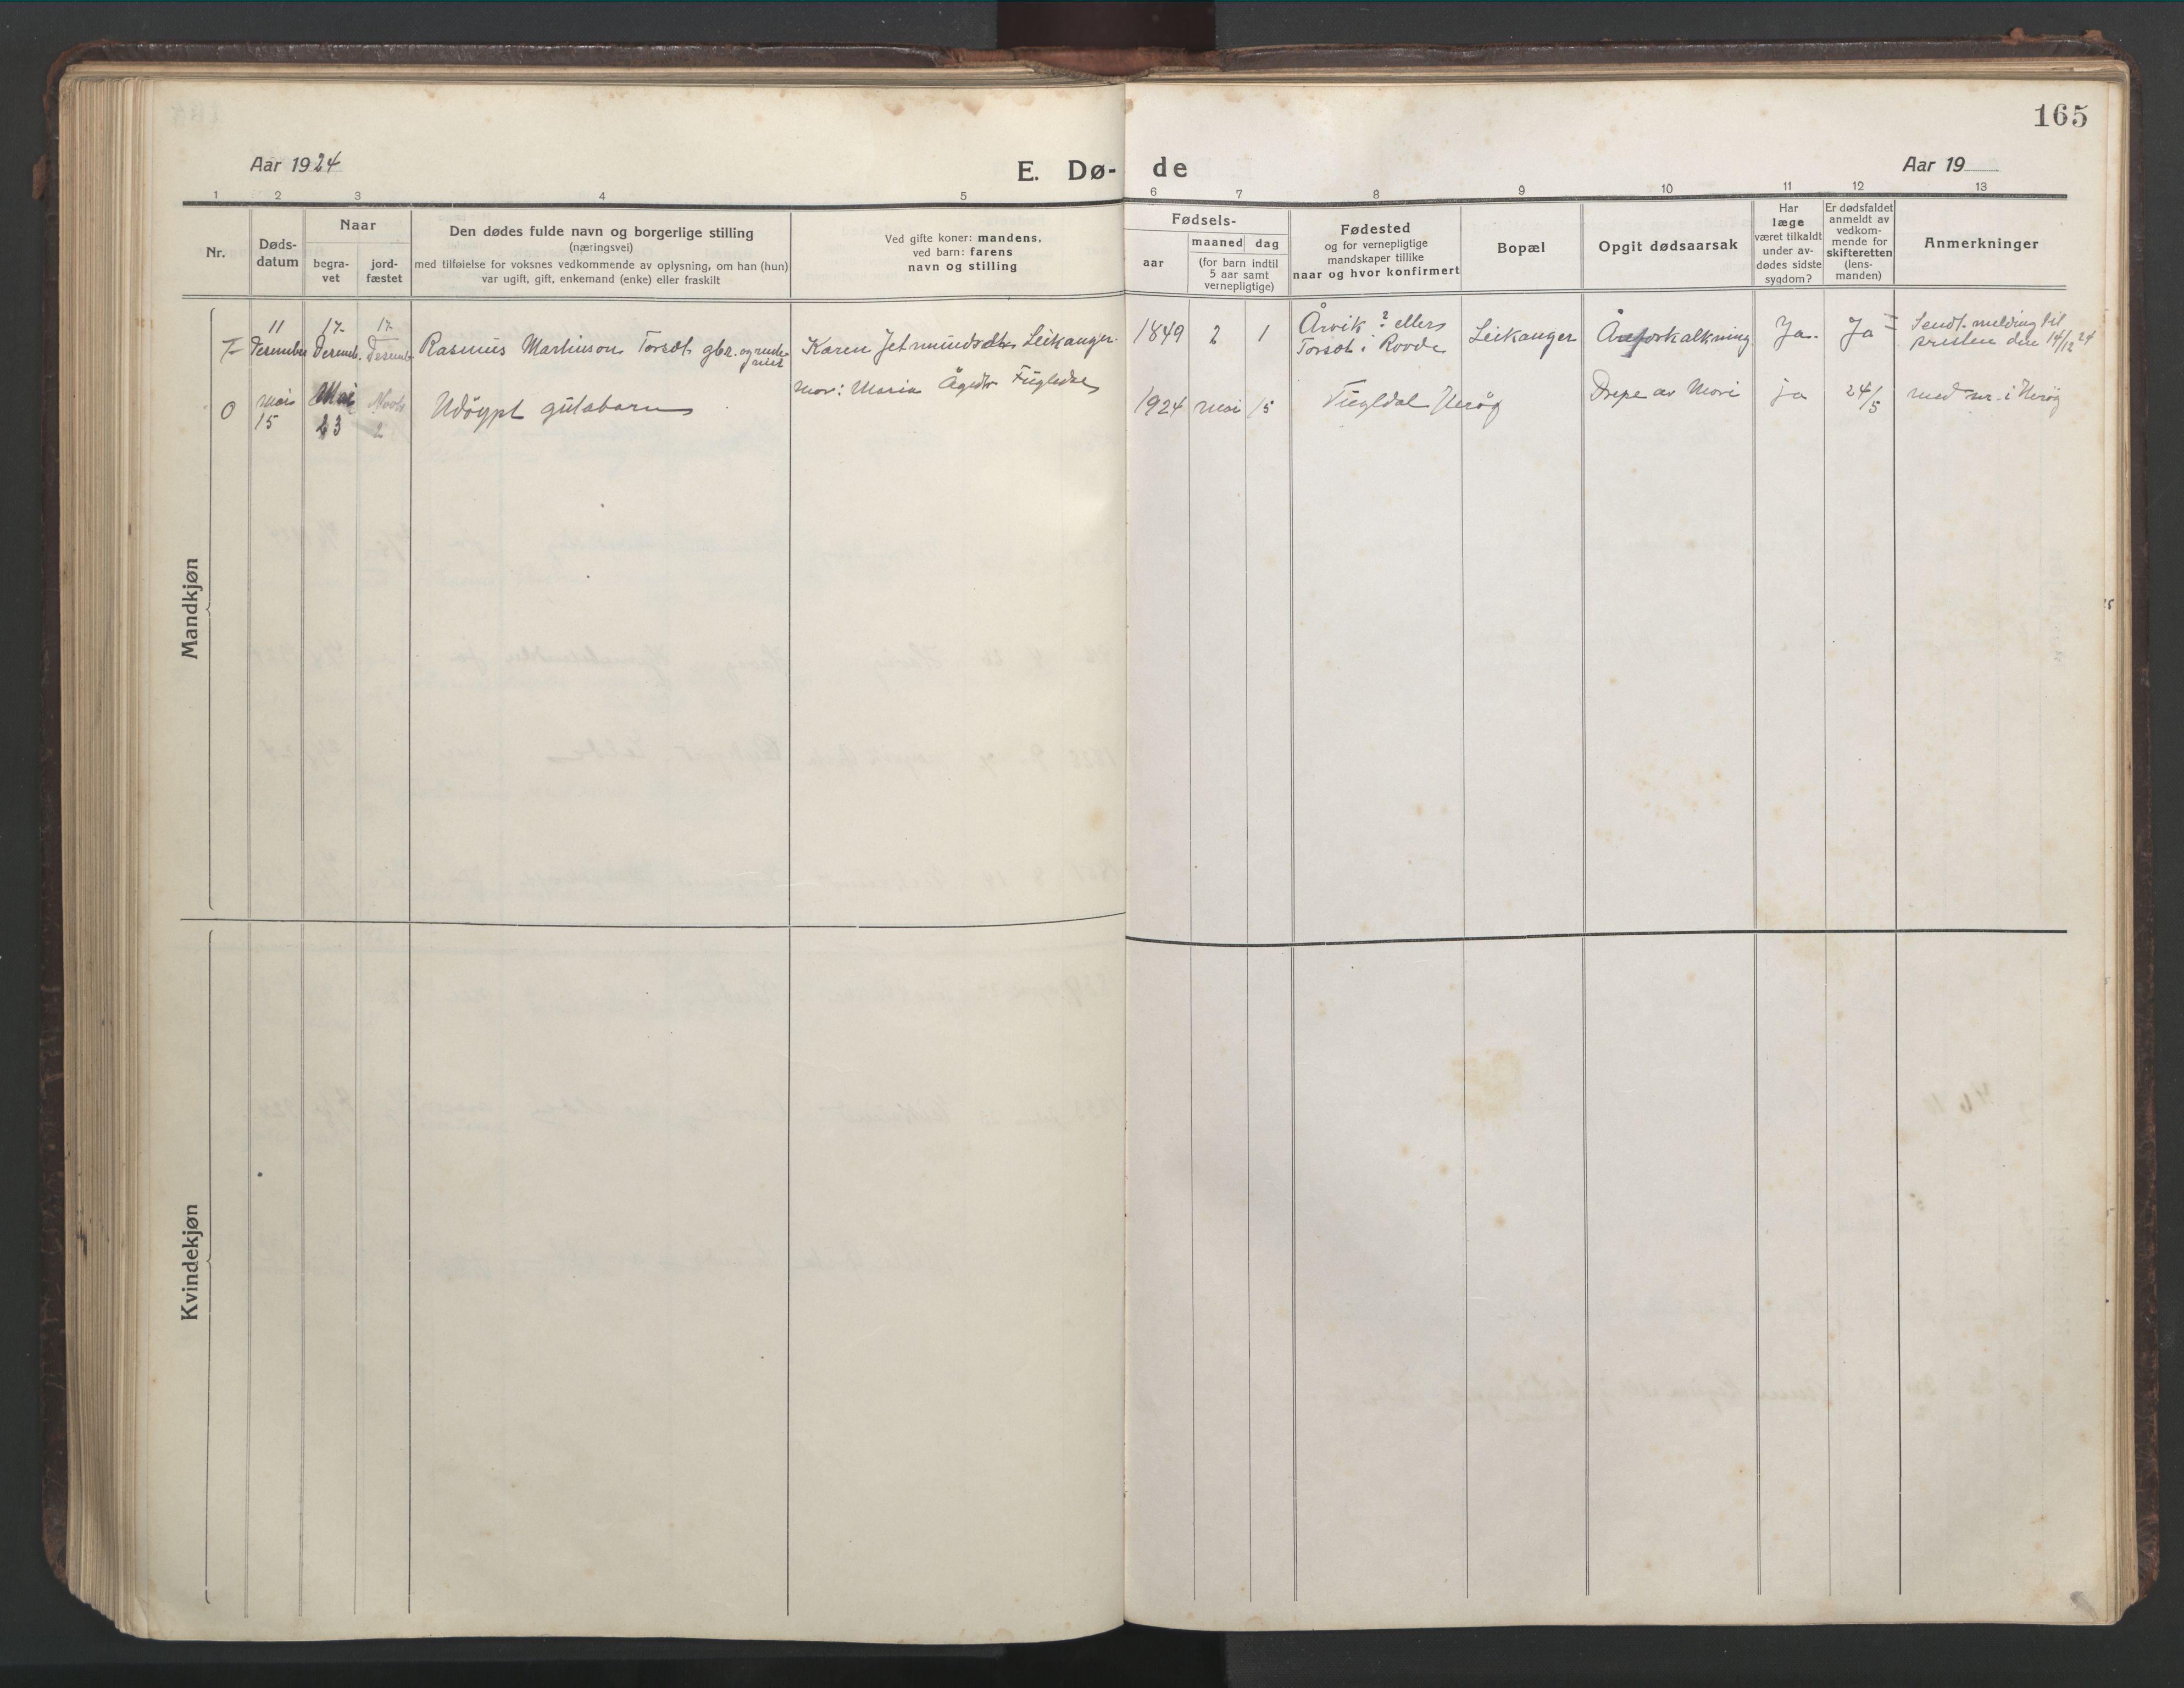 165
Aar 1924
E. Dø- de
Aar 19
1 2 3 4 5 6 7 8 9 10 11 12 13
Nr.
Døds-
datum
Naar
begra-
vet
jord-
fæstet
Den dødes fulde navn og borgerlige stilling
(næringsvei)
med tilføielse for voksnes vedkommende av oplysning, om han (hun)
var ugift, gift, enkemand (enke) eller fraskilt
Ved gifte koner: mandens,
ved barn: farens
navn og stilling
Fødsels-
aar
maaned dag
(for barn indtil
5 aar samt
vernepligtige)
Fødested
og for vernepligtige
mandskaper tillike
naar og hvor konfirmert
Bopæl
Opgit dødsaarsak
Har
læge
været tilkaldt
under av-
dødes sidste
sygdom?
Er dødsfaldet
anmeldt av
vedkom-
mende for
skifteretten
(lens-
manden)
Anmerkninger
Mandkjøn
7
11
Desember
17.
Desemb.
17.
Desemb.
Rasmus Martinson Torset gbr.
Karen Jetmundsdtr Leikanger.
1849 2 1
Årvik? ellers
Torset i Rovde
Leikanger
Åreforkalkning
Ja.
Ja
Sendt melding til
presten den 14/12 24
0
mai
15
Mai
23
Udöypt gutabarn
Mor: Maria Ågedtr Fugledal
1924 mai 15
Fugldal Herøy
Drepe av Mori
ja
24/5
med nr. i Herøy
Kvindekjøn